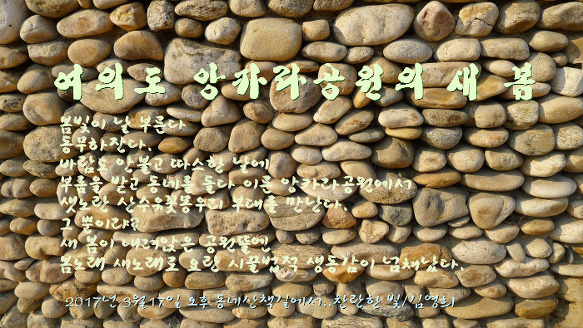 여의도 앙카라공원의 새 봄
봄빛이 날 부른다.
동무하잔다.
바람도 안불고 따스한 날에
부름을 받고 동네를 돌다 이른 앙카라공원에서
샛노란 산수유꽃봉우리 부대를 만난다.
그 뿐이랴?
새 봄이 내려앉은 공원뜰엔
봄노래 새노래로 요란 시끌법적 생동감이 넘쳐났다.
2017년 3월17일 오후 동네산책길에서..찬란한 빛/김영희